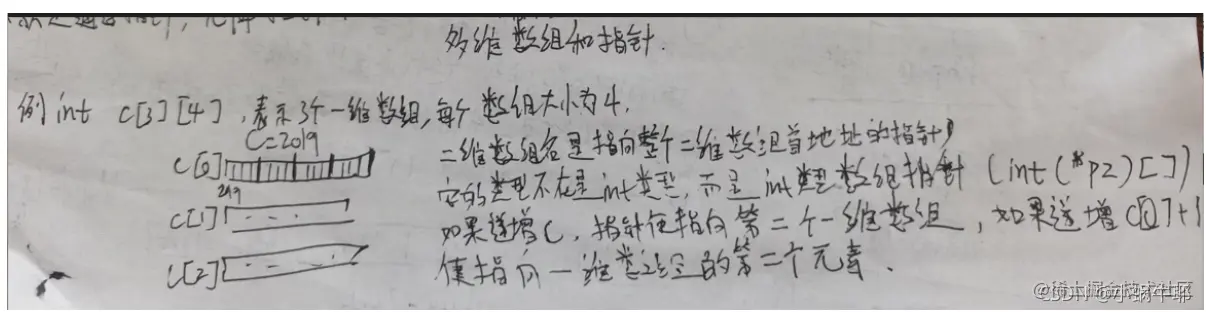 多维数组和指针.
例 int c[3][4], 表示3个一维数组, 每个数组大小为4.
C=2019
c[0]
2019
c[1]
c[2]
二维数组名是指向整个二维数组首地址的指针,
它的类型不在是int类型, 而是int类型数组指针 (int(*p2)[])
如果递增C, 指针便指向第二个一维数组, 如果递增c[0]+1
便指向一维数组的第二个元素.
@稀土掘金技术社区
CSDN @小蜗牛耶